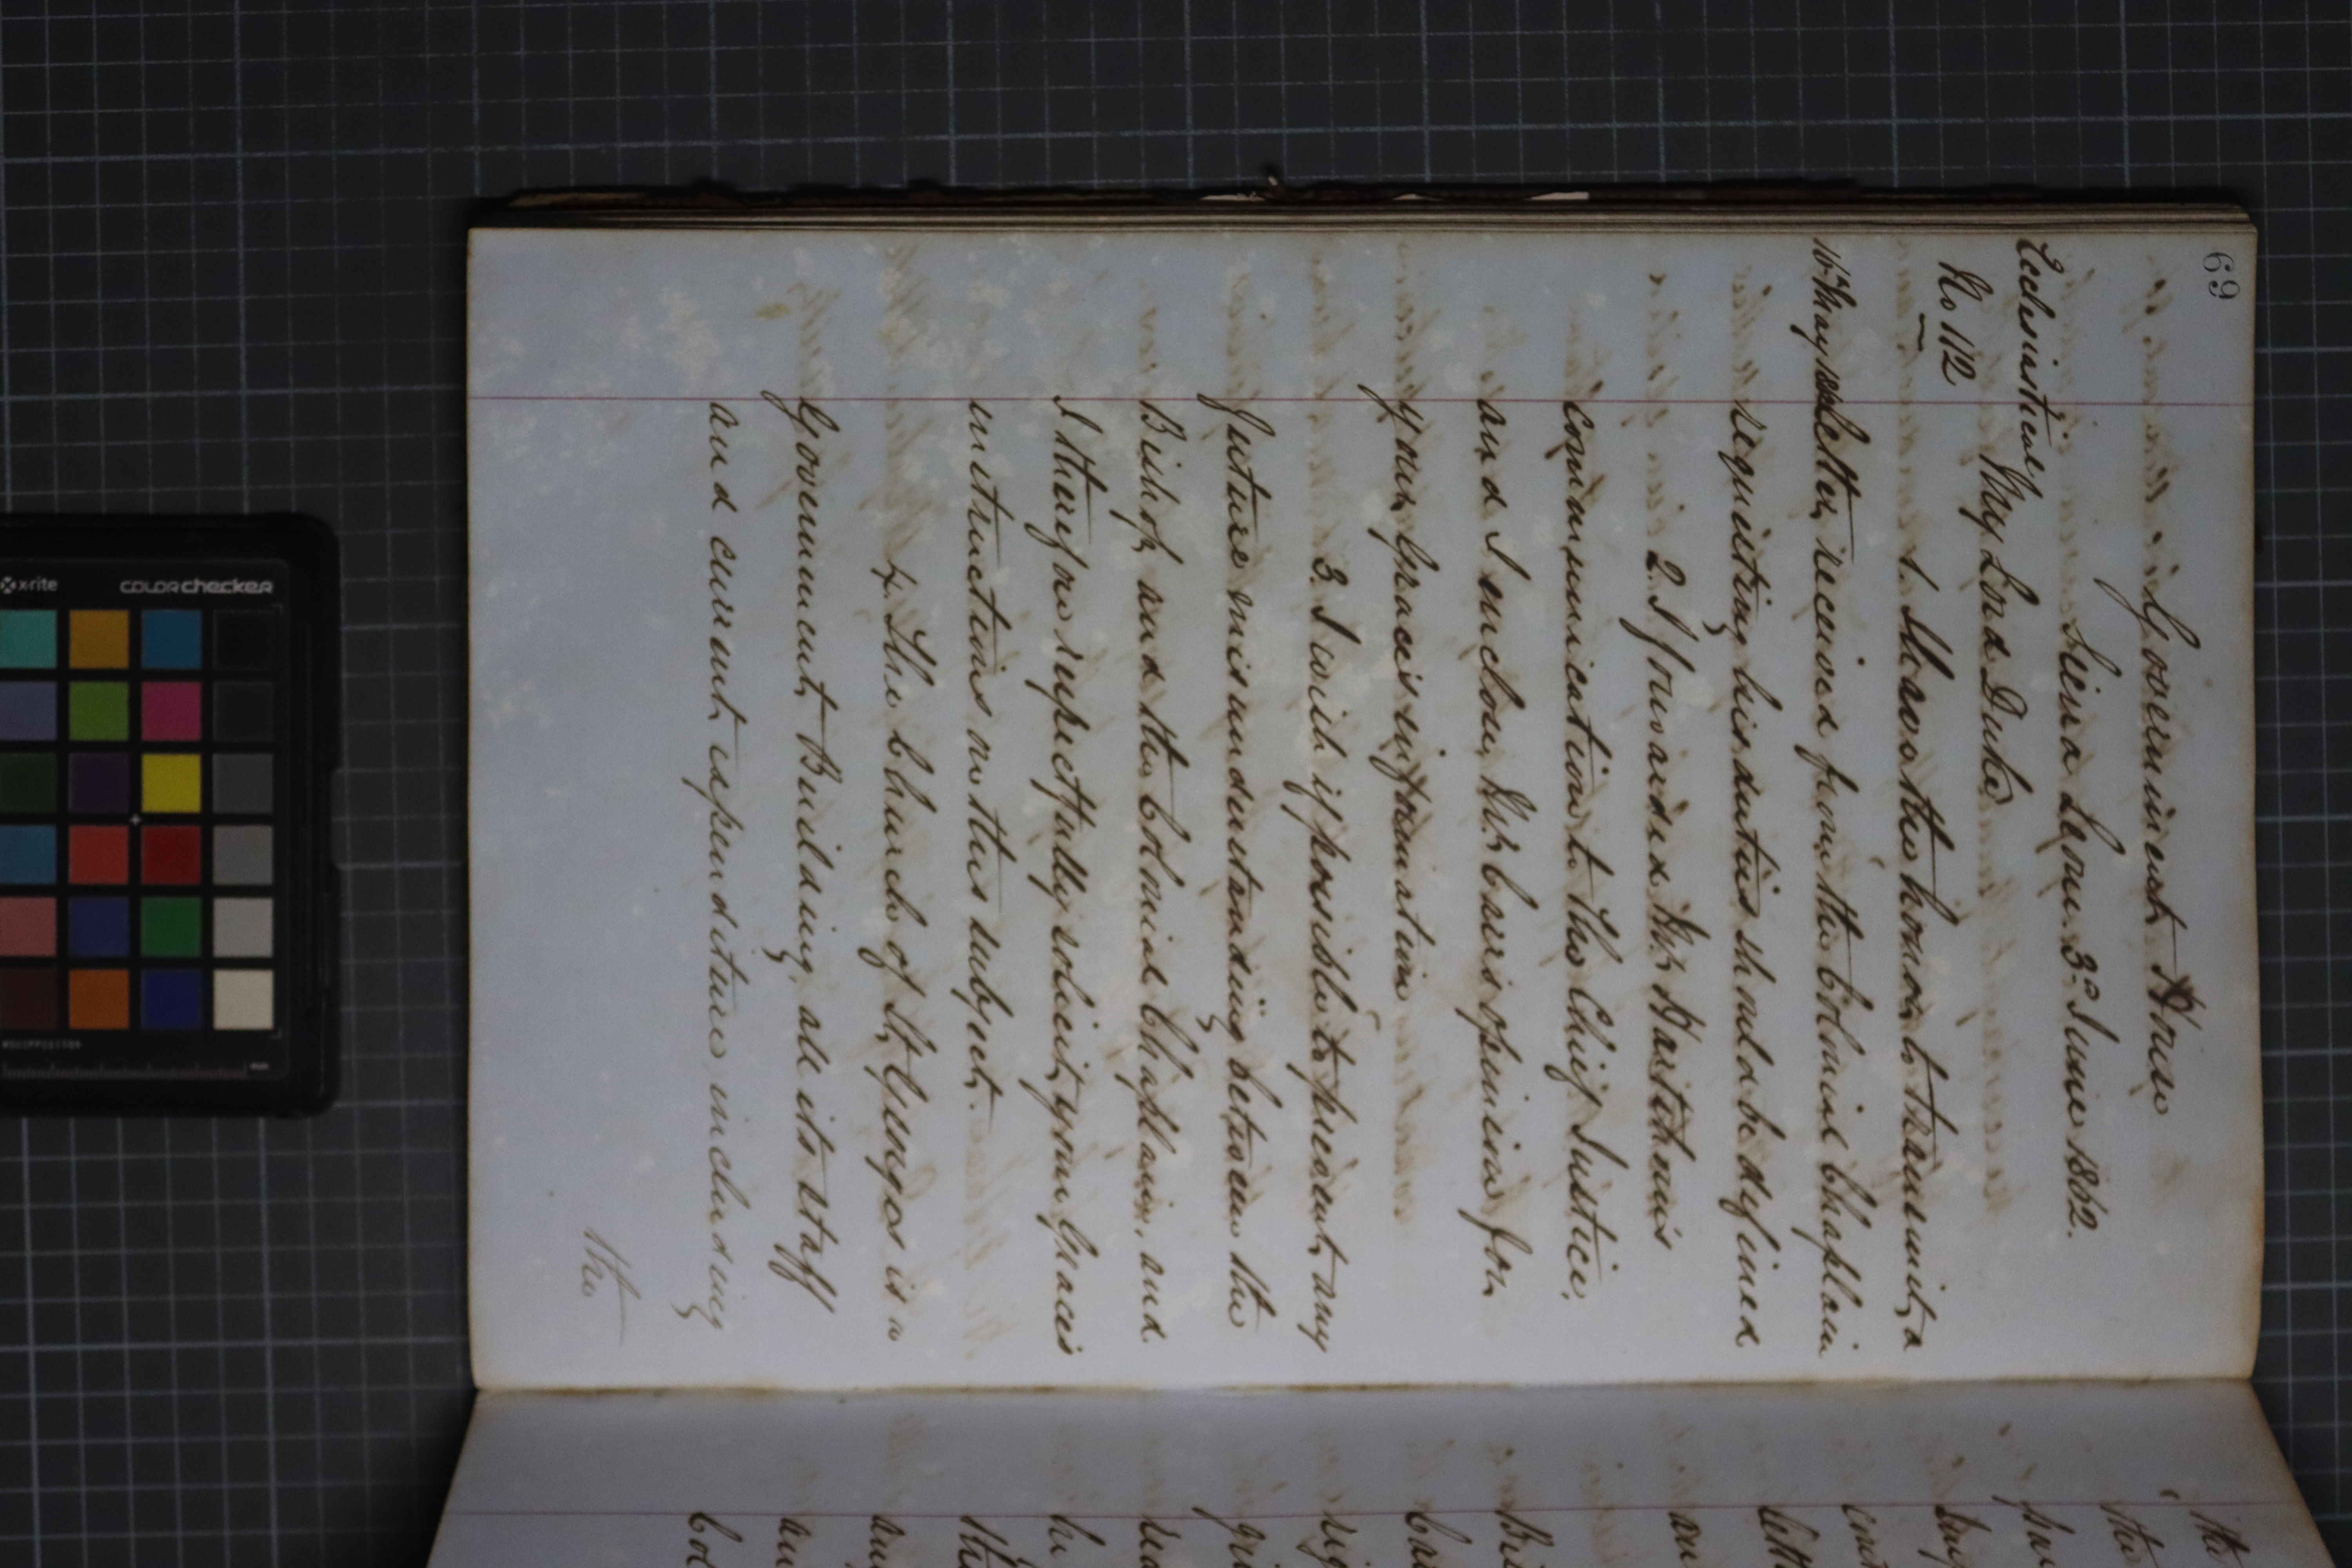 69
Government House
Sierra Leone 3d June 1862.
Ecclesiastical
My Lord Duke
No 112
1. I have the honor to transmit a
10th May 1862
letter received from the Colonial Chaplain
requesting his duties should be defined
2. I forwarded Mr
communication to the Chief Justice,
and I enclose Mr Carr's opinion for
your Grace's information
3. I wish if possible to prevent any
future misunderstanding between the
Bishop and the Colonial Chaplain, and
I therefore respectfully solicit your Grace's
instructions on this subject.
4. The Church of St Georges is a
Government Building, all its staff
and current expenditure including
the
the
the
x-rite
colorchecker
mm